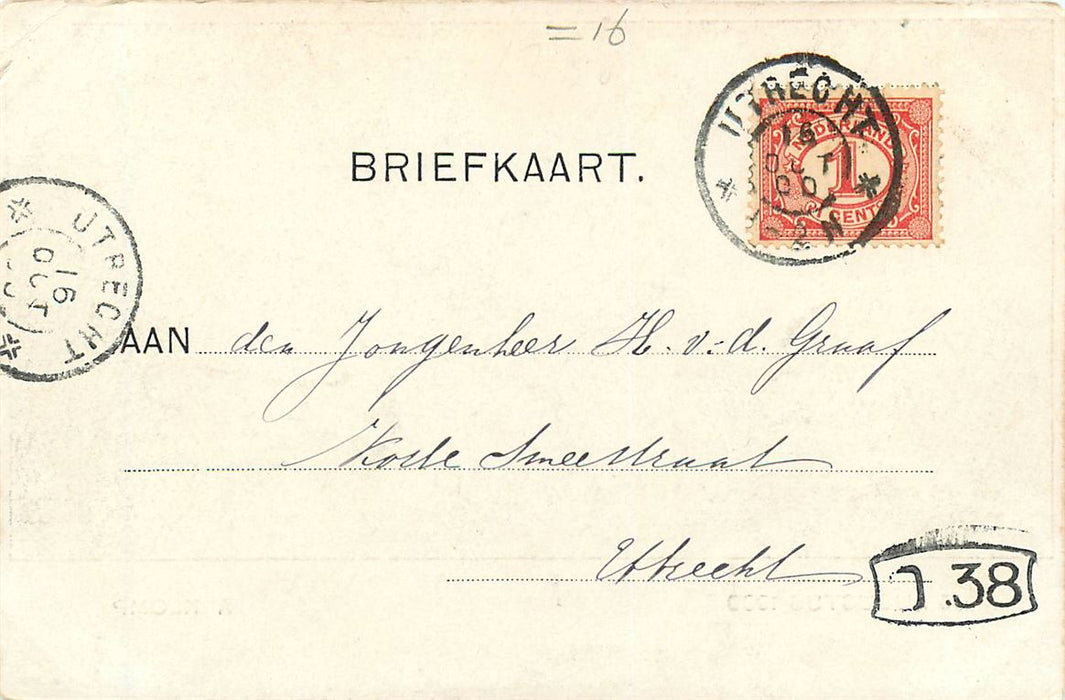 =16
UTRECHT
16
OCT
00
NEDERLAND
1
CENT
BRIEFKAART.
UTRECHT
16
OCT
AAN den Jongenheer H. v. d. Graaf
Korte Smeestraat
Utrecht
.38